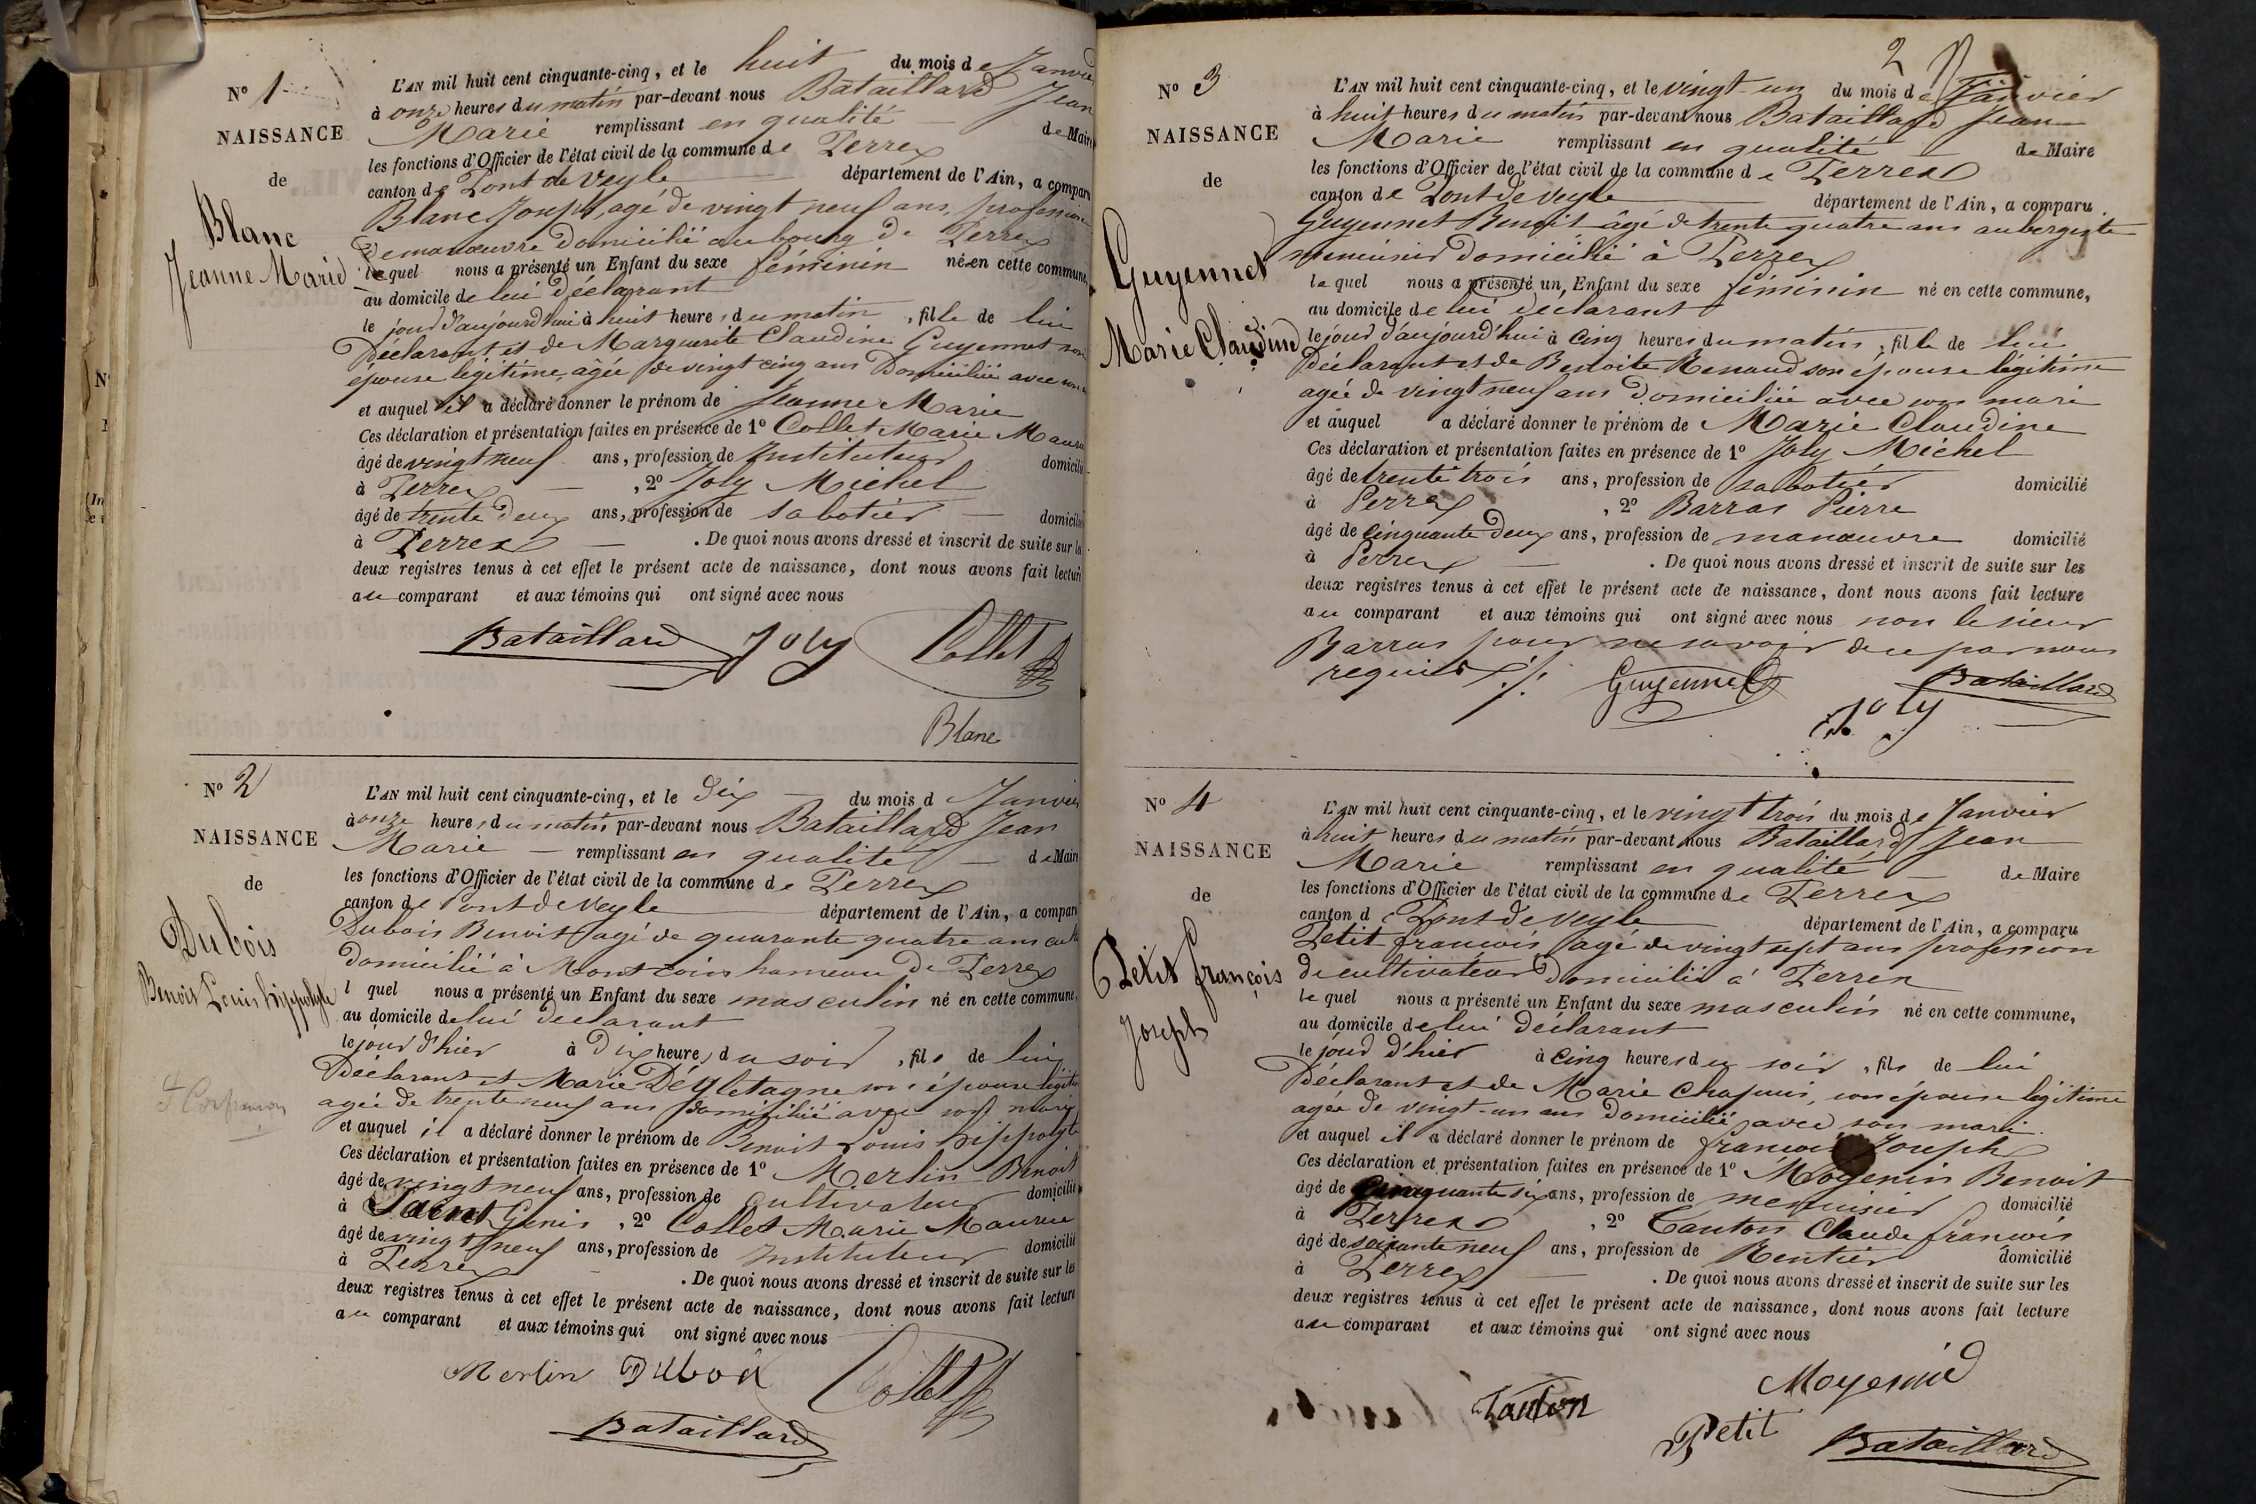 N° 1
NAISSANCE
de
Blanc
Jeanne Marie
L'AN mil huit cent cinquante-cinq, et le huit du mois de Janvier
à onze heures du matin par-devant nous Bataillard Jean
Marie remplissant en qualité de Maire
les fonctions d'Officier de l'état civil de la commune de Perrex
canton de Pont de Veyle département de l'Ain, a comparu
Blanc Joseph, agé de vingt neuf ans, profession
de manœuvre domicilié au bourg de Perrex
lequel nous a présenté un Enfant du sexe féminin né en cette commune,
au domicile de lui déclarant
le jour d'aujourd'hui à huit heures du matin, fille de lui
Déclarant et de Marguerite Claudine Guyennet son
épouse légitime, âgée de vingt cinq ans Domiciliée avec
et auquel il a déclaré donner le prénom de Jeanne Marie
Ces déclaration et présentation faites en présence de 1° Collet Marie
âgé de vingt neuf ans, profession de Instituteur domicilié
à Perrex, 2° Joly Michel
âgé de trente deux ans, profession de sabotier domicilié
à Perrex. De quoi nous avons dressé et inscrit de suite sur les
deux registres tenus à cet effet le présent acte de naissance, dont nous avons fait lecture
au comparant et aux témoins qui ont signé avec nous
Bataillard Joly Collet
Blanc
N° 2
NAISSANCE
de
Dubois
Benoit Louis hippolyte
L'AN mil huit cent cinquante-cinq, et le dix du mois d Janvier
à onze heures du matin par-devant nous Bataillard Jean
Marie remplissant en qualité de Maire
les fonctions d'Officier de l'état civil de la commune de Perrex
canton de Pont de Veyle département de l'Ain, a comparu
Dubois Benoit agé de quarante quatre ans
domicilié à hameau de Perrex
l quel nous a présenté un Enfant du sexe masculin né en cette commune,
au domicile de lui déclarant
le jour d'hier à Dix heures du soir, fils de lui
Déclarant et Marie son épouse légitime
agée de trente neuf ans domiciliée avec son mari
et auquel il a déclaré donner le prénom de Benoit Louis hippolyte
Ces déclaration et présentation faites en présence de 1° Merlin Benoit
âgé de vingt neuf ans, profession de cultivateur domicilié
à Saint Genis, 2° Collet Marie
âgé de vingt neuf ans, profession de Instituteur domicilié
à Perrex. De quoi nous avons dressé et inscrit de suite sur les
deux registres tenus à cet effet le présent acte de naissance, dont nous avons fait lecture
au comparant et aux témoins qui ont signé avec nous
Merlin Collet
Bataillard
2
N° 3
NAISSANCE
de
Guyennet
Marie Claudine
L'AN mil huit cent cinquante-cinq, et le vingt-un du mois de Janvier
à huit heures du matin par-devant nous Bataillard Jean
Marie remplissant en qualité de Maire
les fonctions d'Officier de l'état civil de la commune de Perrex
canton de Pont de Veyle département de l'Ain, a comparu
Guyennet Benoit âgé de trente quatre ans aubergiste
menuisier domicilié à Perrex
lequel nous a présenté un Enfant du sexe féminin né en cette commune,
au domicile de lui déclarant
le jour d'aujourd'hui à cinq heures du matin, fille de lui
Déclarant et de Benoite Renaud son épouse légitime
agée de vingt neuf ans domiciliée avec son mari
et auquel a déclaré donner le prénom de Marie Claudine
Ces déclaration et présentation faites en présence de 1° Joly Michel
âgé de trente trois ans, profession de sabotier domicilié
à Perrex, 2° Barras Pierre
âgé de cinquante deux ans, profession de manœuvre domicilié
à Perrex. De quoi nous avons dressé et inscrit de suite sur les
deux registres tenus à cet effet le présent acte de naissance, dont nous avons fait lecture
au comparant et aux témoins qui ont signé avec nous non le sieur
Barras pour ne savoir de ce par nous
requis ./.
Guyennet Bataillard
Joly
N° 4
NAISSANCE
de
Petit françois
Joseph
L'AN mil huit cent cinquante-cinq, et le vingt trois du mois de Janvier
à huit heures du matin par-devant nous Bataillard Jean
Marie remplissant en qualité de Maire
les fonctions d'Officier de l'état civil de la commune de Perrex
canton de Pont de Veyle département de l'Ain, a comparu
Petit francois agé de vingt sept ans profession
de cultivateur domicilié à Perrex
lequel nous a présenté un Enfant du sexe masculin né en cette commune,
au domicile de lui déclarant
le jour d'hier à cinq heures du soir, fils de lui
Déclarant et de Marie Chapuis, son épouse légitime
agée de vingt-un ans domiciliée avec son mari
et auquel il a déclaré donner le prénom de francois Joseph
Ces déclaration et présentation faites en présence de 1° Moyenin Benoit
âgé de cinquante six ans, profession de menuisier domicilié
à Perrex, 2° Tanton Claude francois
âgé de soixante neuf ans, profession de Rentier domicilié
à Perrex. De quoi nous avons dressé et inscrit de suite sur les
deux registres tenus à cet effet le présent acte de naissance, dont nous avons fait lecture
au comparant et aux témoins qui ont signé avec nous
Tanton
Petit Bataillard